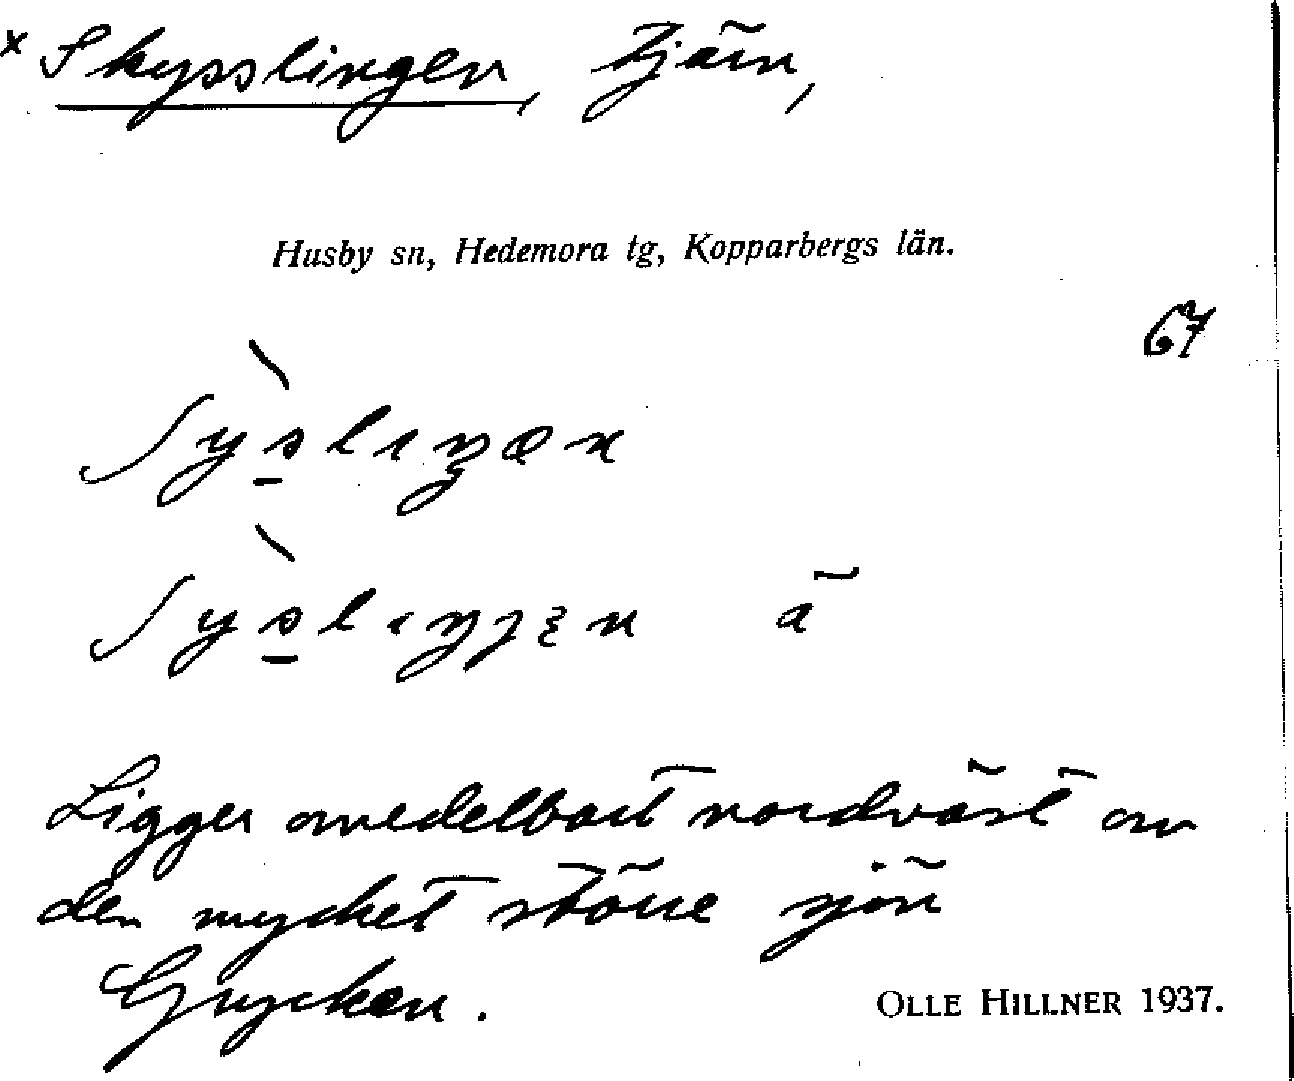 x Skysslingen, tjärn,
Husby sn, Hedemora tg, Kopparbergs län.
67
Ligger omedelbart nordväst om
den mycket större sjön
Grycken.
OLLE HILLNER 1937.